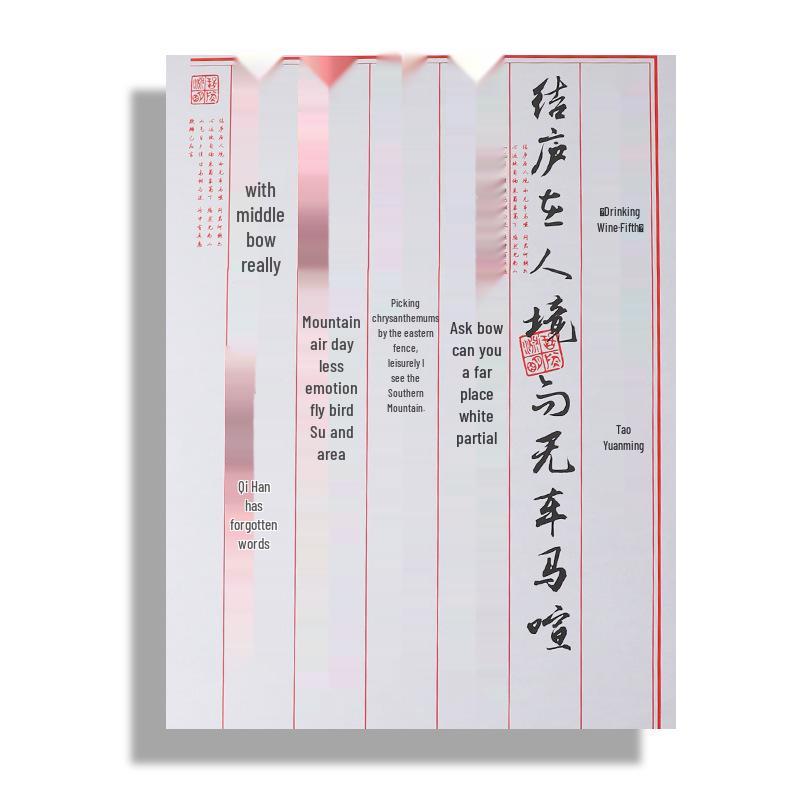 Drinking
Wine·Fifth
Tao
Yuanming
结庐在人境而无车马喧
Ask bow
can you
a far
place
white
partial
Picking
chrysanthemums
by the eastern
fence,
leisurely I
see the
Southern
Mountain.
Mountain
air day
less
emotion
fly bird
Su and
area
with
middle
bow
really
Qi Han
has
forgotten
words